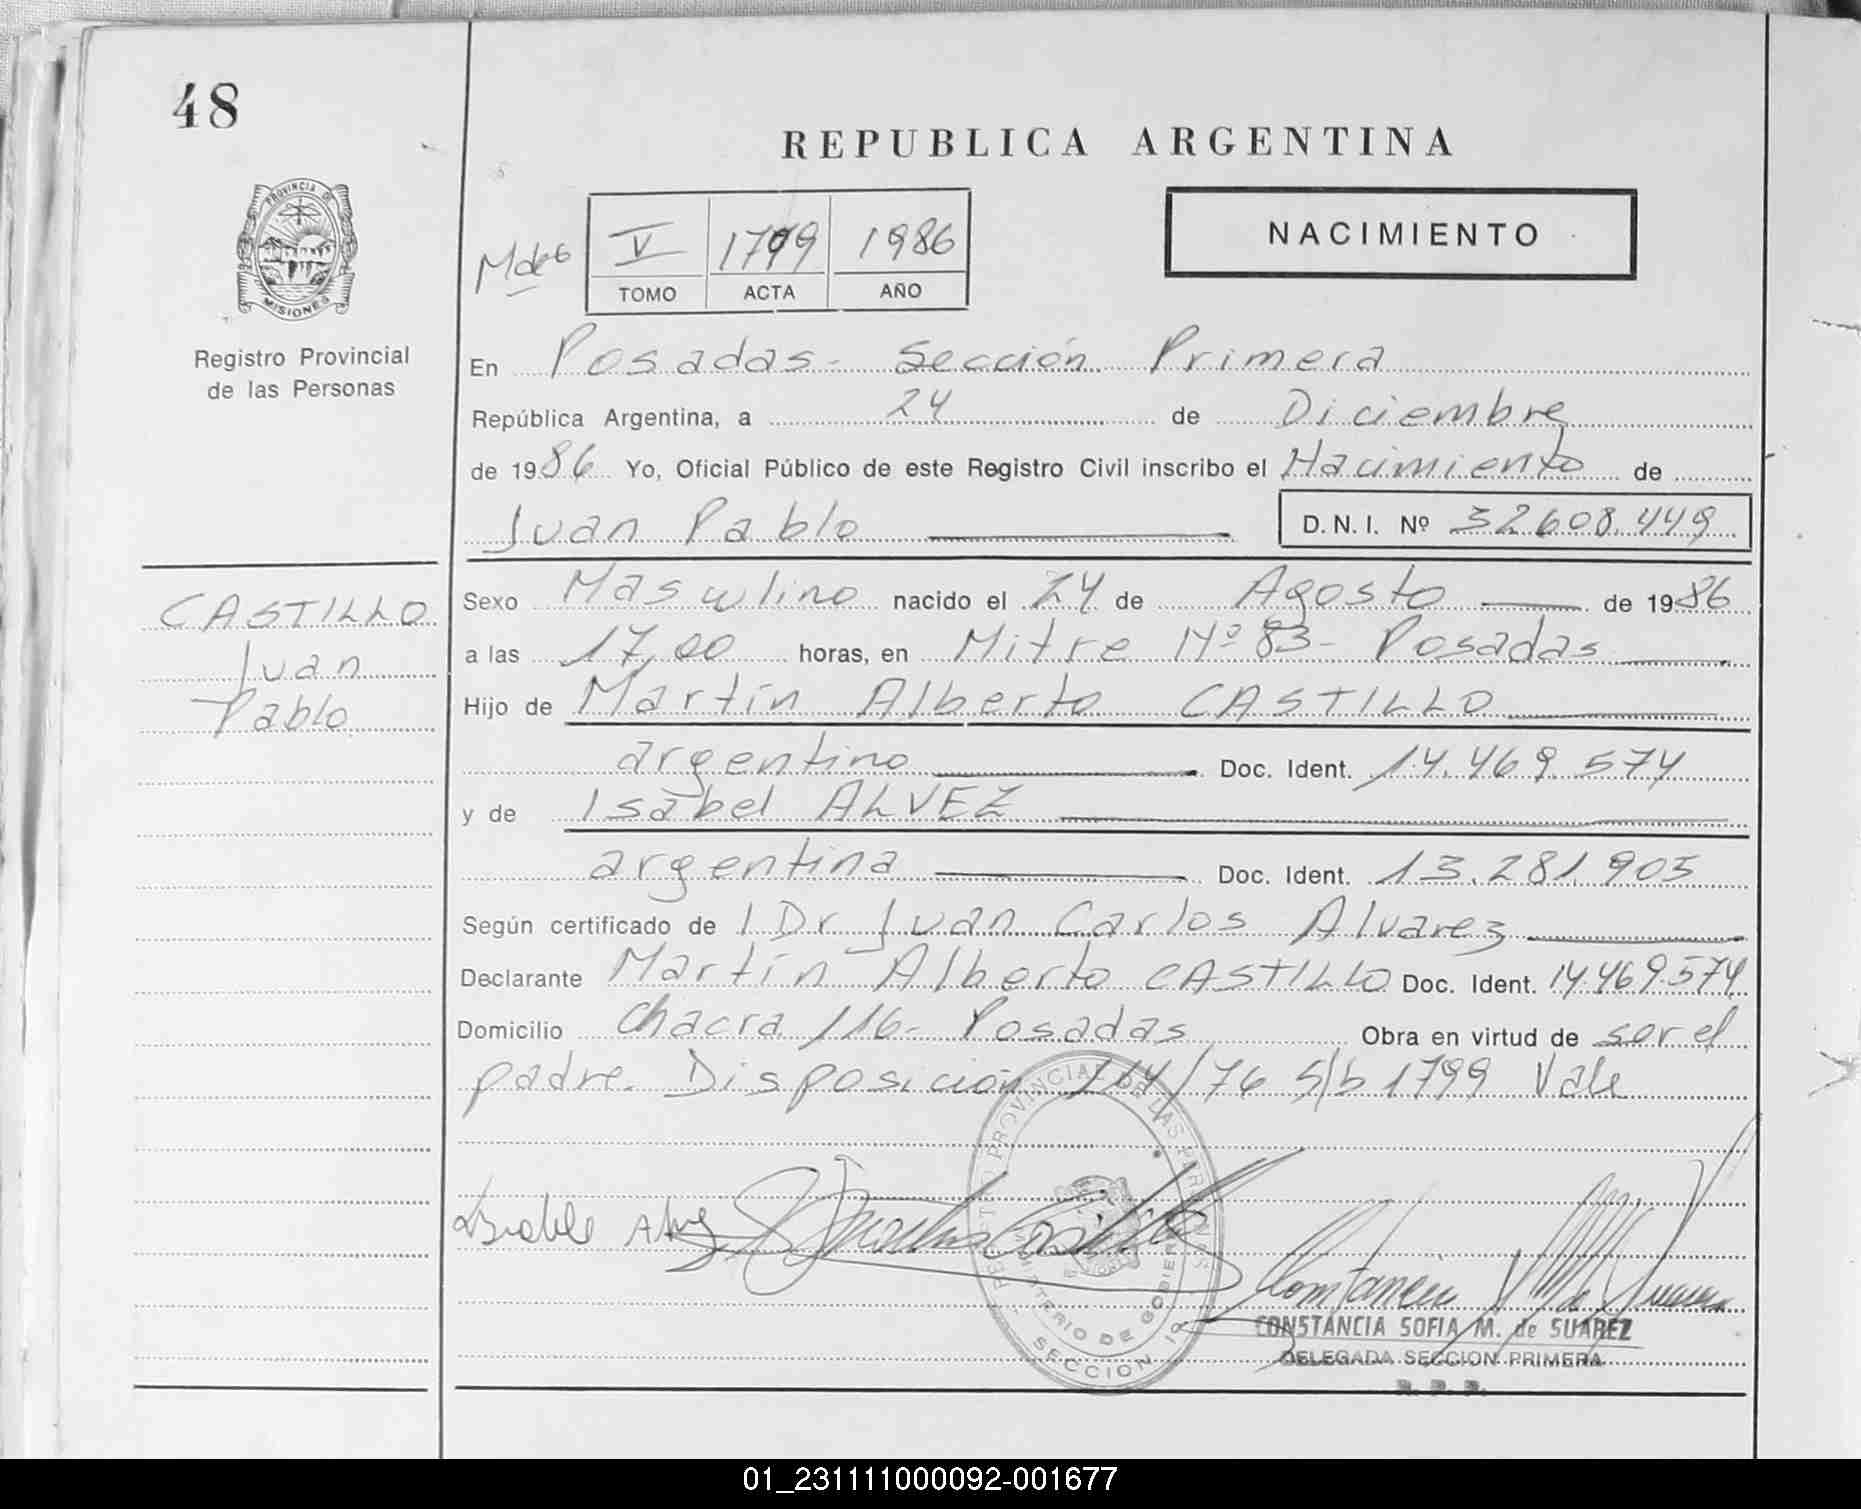 48
REPUBLICA ARGENTINA
PROVINCIA DE
MISIONES
Registro Provincial
de las Personas
V 1799 1986
TOMO ACTA AÑO
NACIMIENTO
En Posadas - Sección Primera
República Argentina, a 24 de Diciembre
de 1986 Yo, Oficial Público de este Registro Civil inscribo el Nacimiento de
Juan Pablo
D.N.I. Nº 32.608.449
CASTILLO
Juan
Pablo
Sexo Masculino nacido el 24 de Agosto de 1986
a las 17,00 horas, en Mitre Nº 83 - Posadas
Hijo de Martín Alberto CASTILLO
argentino Doc. Ident. 14.469.574
y de Isabel ALVEZ
argentina Doc. Ident. 13.281.905
Según certificado de l Dr Juan Carlos Alvarez
Declarante Martín Alberto CASTILLO Doc. Ident. 14.469.574
Domicilio Chacra 116 - Posadas Obra en virtud de ser el
padre. Disposición 114/76 S/b 1799 Vale
REGISTRO PROVINCIAL DE LAS PERSONAS
MINISTERIO DE GOBIERNO
SECCION 1ª
CONSTANCIA SOFIA M. de SUAREZ
DELEGADA SECCION PRIMERA
R. P. P.
01_231111000092-001677